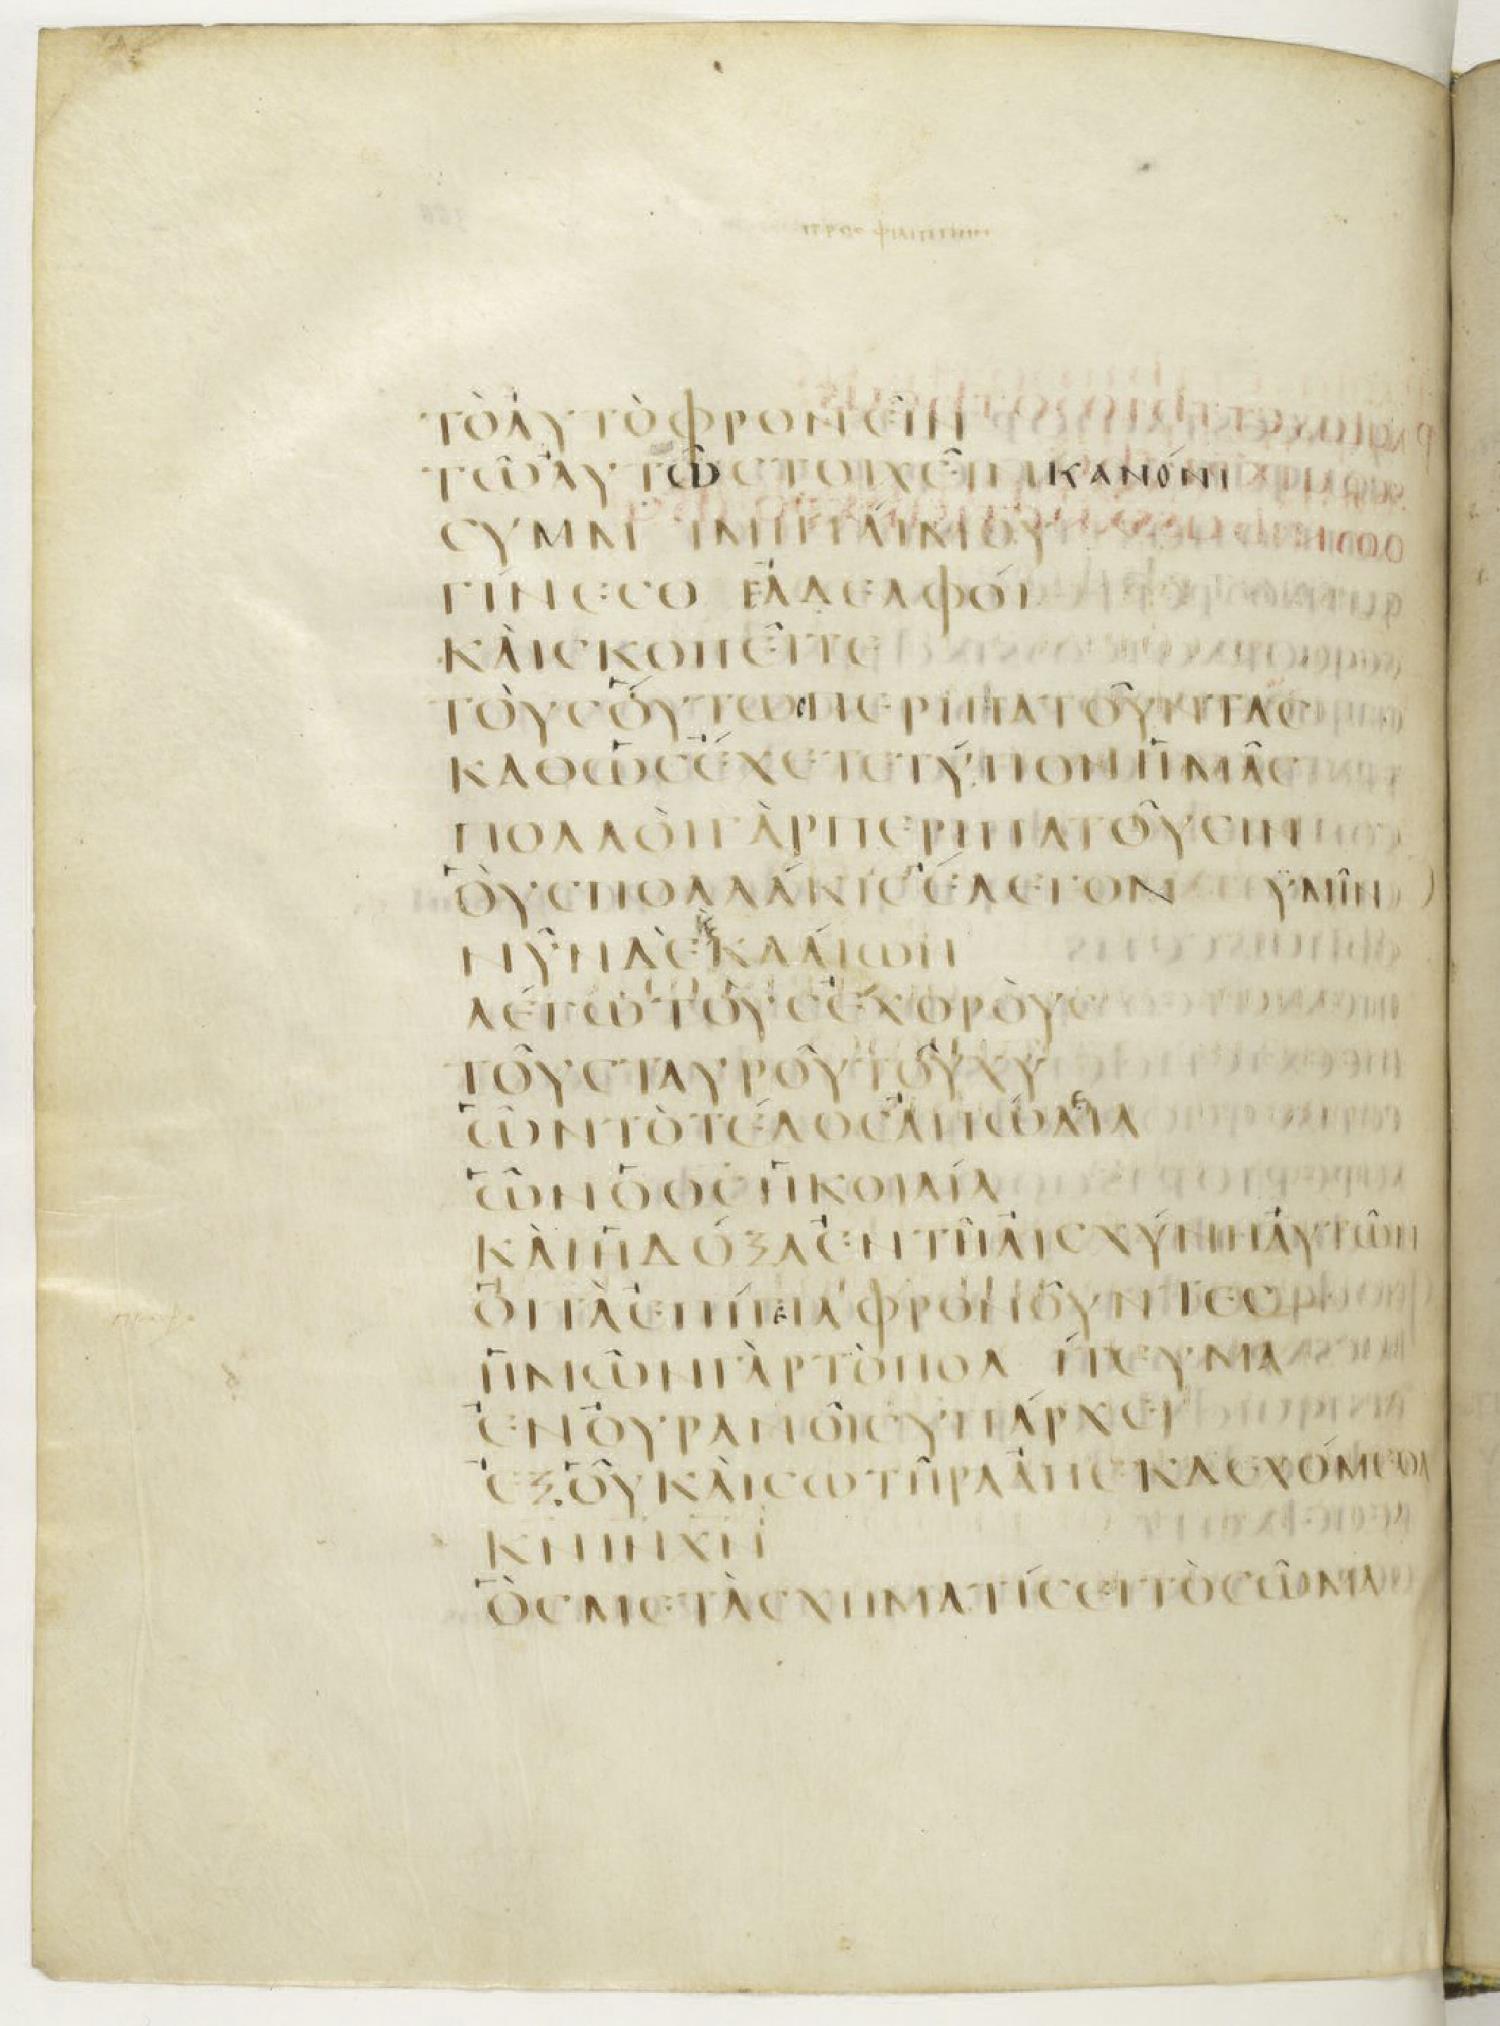 προσ φιλιππησι
τὸἀυτὸφρονεῖν
τῶἀυτῶστοιχεῖν κανόνι
συμμιμηταίμου
γίνεσθε ἀδελφόι
κὰισκοπεῖτε
τὸυσὁύτωσπεριπατοῦντασ
καθὼσἔχετετύπονἡμᾶσ
πολλὸιγὰρπεριπατοῦσιν
ὁὺσπολλάκισἔλεγον ὑμῖν
νῦνδὲκὲκλάιων
λέγωτὸυσἐχθρὸυσ
τοῦσταυροῦτοῦχυ
ὧντὸτέλοσἀπώλεια
ὧνὁθσἡκοιλία
κὰιἡδόξαἐντῆἀισχύνηἀυτῶν
ὁιτὰἐπίγειαφρονοῦντεσ
ἡμῶνγὰρτὸπολίτευμα
ἐνὀυρανοῖσυπάρχει
ἐξὁῦκὰισωτῆραἀπεκδεχόμεθα
κνιηνχν
ὃσμετὰσχηματίσειτὸσῶμα